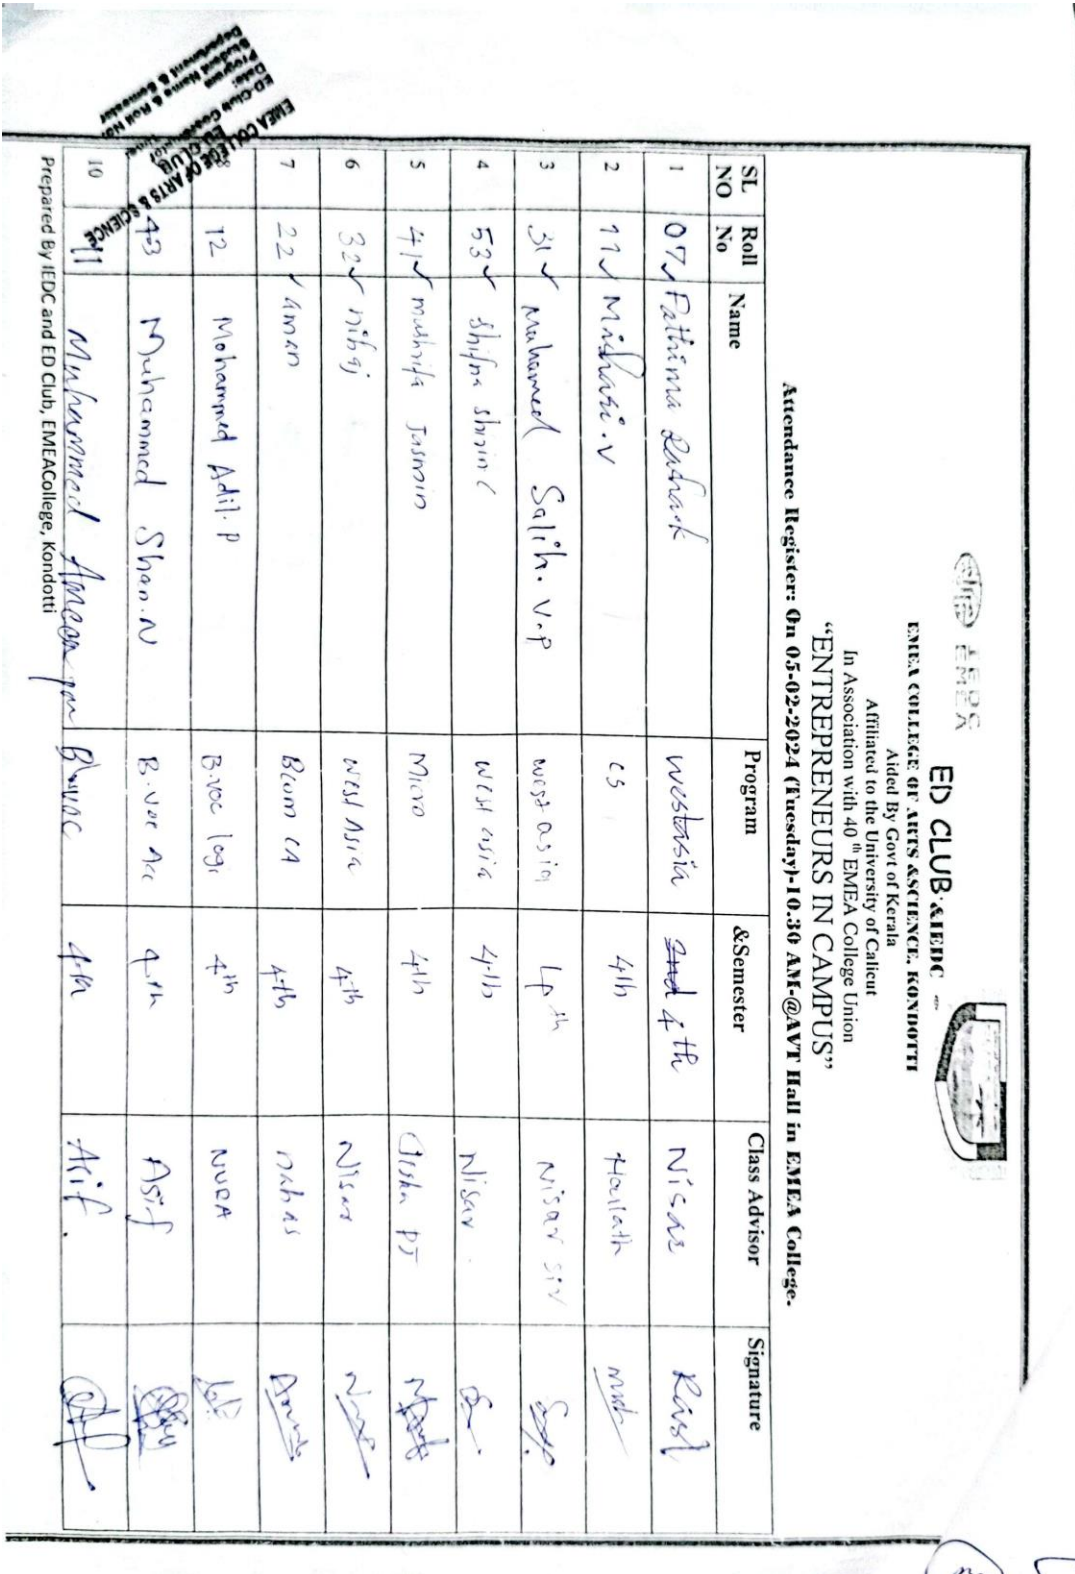 IEDC
EMEA
ED CLUB &IEDC
EMEA COLLEGE OF ARTS &SCIENCE, KONDOTTI
Aided By Govt of Kerala
Affiliated to the University of Calicut
In Association with 40 th EMEA College Union
“ENTREPRENEURS IN CAMPUS”
Attendance Register: On 05-02-2024 (Tuesday)-10.30 AM-@AVT Hall in EMEA College.
SL NO Roll No Name Program &Semester Class Advisor Signature
1 07 Fathima westasia 2nd 4th Nisar
2 11 v CS 4th
3 31 Muhamed Salih. V.P west asia 4th Nisar sir
4 53 shifna shirin c west asia 4th Nisar
5 41 Jasmin Micro 4th PJ
6 32 nihaj west Asia 4th Nisar
7 22 Aman Bcom CA 4th nahas
8 12 Mohammed Adil. P B.voc logi 4th
43 Muhammed Shan.N B.voc Acc 4th Asif
10 11 Muhammed Ameen 4th Asif.
Prepared By IEDC and ED Club, EMEACollege, Kondotti
EMEA COLLEGE OF ARTS & SCIENCE
ED CLUB
ED-Club Coordinator
Date: Time:
Program
Student Name & Roll No:
Department & Semester